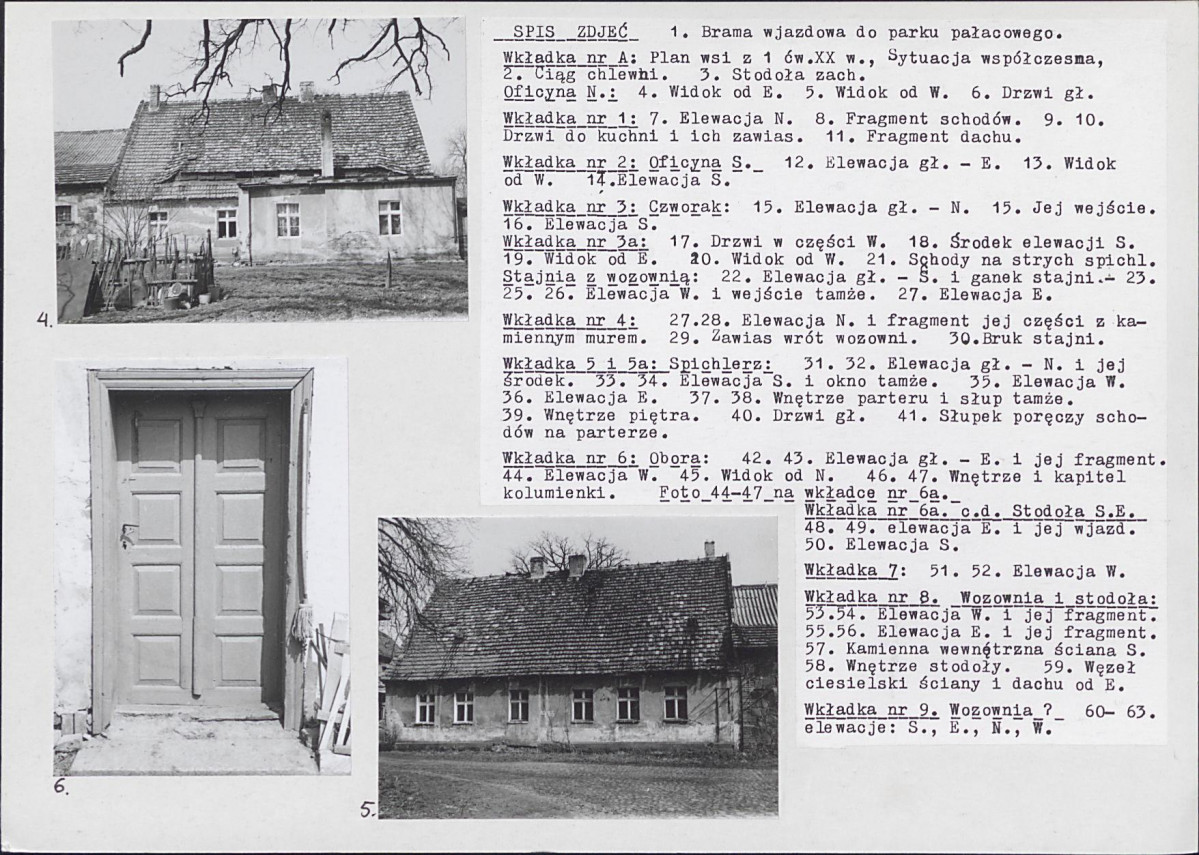 SPIS ZDJĘĆ 1. Brama wjazdowa do parku pałacowego.
Wkładka nr A: Plan wsi z 1 ćw.XX w., Sytuacja współczesma,
2. Ciąg chlewni. 3. Stodoła zach.
Oficyna N.: 4. Widok od E. 5. Widok od W. 6. Drzwi gł.
Wkładka nr 1: 7. Elewacja N. 8. Fragment schodów. 9. 10.
Drzwi do kuchni i ich zawias. 11. Fragment dachu.
Wkładka nr 2: Oficyna S. 12. Elewacja gł. - E. 13. Widok
od W. 14.Elewacja S.
Wkładka nr 3: Czworak: 15. Elewacja gł. - N. 15. Jej wejście.
16. Elewacja S.
Wkładka nr 3a: 17. Drzwi w części W. 18. Środek elewacji S.
19. Widok od E. 20. Widok od W. 21. Schody na strych spichl.
Stajnia z wozownią: 22. Elewacja gł. - S. i ganek stajni.- 23.
25. 26. Elewacja W. i wejście tamże. 27. Elewacja E.
Wkładka nr 4: 27.28. Elewacja N. i fragment jej części z ka-
miennym murem. 29. Zawias wrót wozowni. 30.Bruk stajni.
Wkładka 5 i 5a: Spichlerz: 31. 32. Elewacja gł. - N. i jej
środek. 33. 34. Elewacja S. i okno tamże. 35. Elewacja W.
36. Elewacja E. 37. 38. Wnętrze parteru i słup tamże.
39. Wnętrze piętra. 40. Drzwi gł. 41. Słupek poręczy scho-
dów na parterze.
Wkładka nr 6: Obora: 42. 43. Elewacja gł. - E. i jej fragment.
44. Elewacja W. 45. Widok od N. 46. 47. Wnętrze i kapitel
kolumienki. Foto 44-47 na wkładce nr 6a.
Wkładka nr 6a. c.d. Stodoła S.E.
48. 49. elewacja E. i jej wjazd.
50. Elewacja S.
Wkładka 7: 51. 52. Elewacja W.
Wkładka nr 8. Wozownia i stodoła:
53.54. Elewacja W. i jej fragment.
55.56. Elewacja E. i jej fragment.
57. Kamienna wewnętrzna ściana S.
58. Wnętrze stodoły. 59. Węzeł
ciesielski ściany i dachu od E.
Wkładka nr 9. Wozownia ? 60- 63.
elewacje: S., E., N., W.
4.
6.
5.